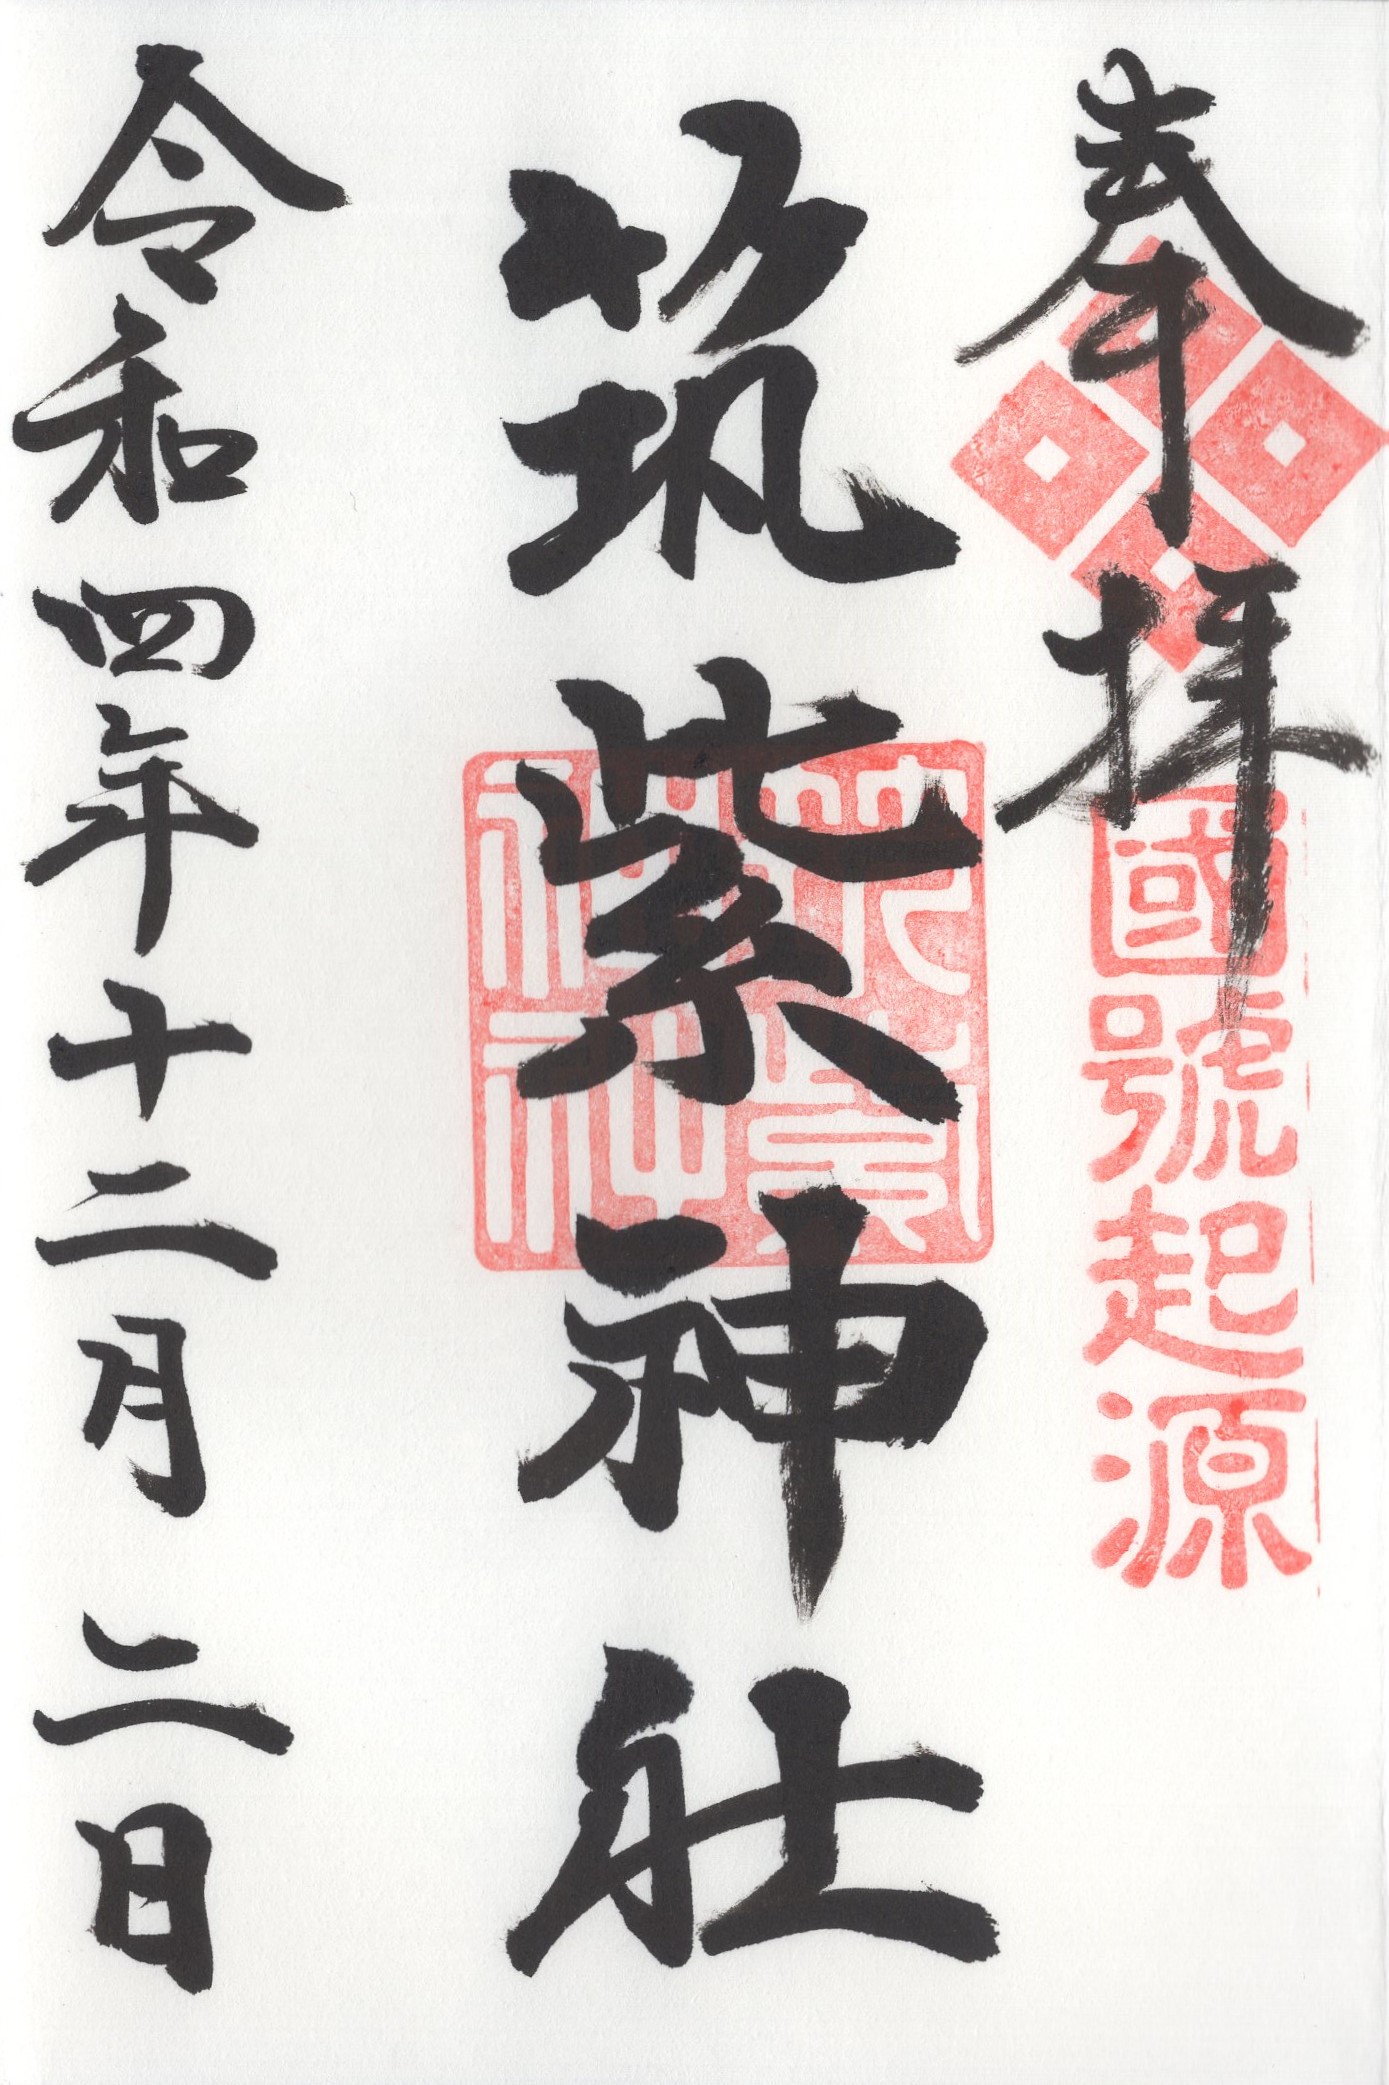 奉拝
國號起源
筑紫神社
筑紫神社
令和四年十二月二日